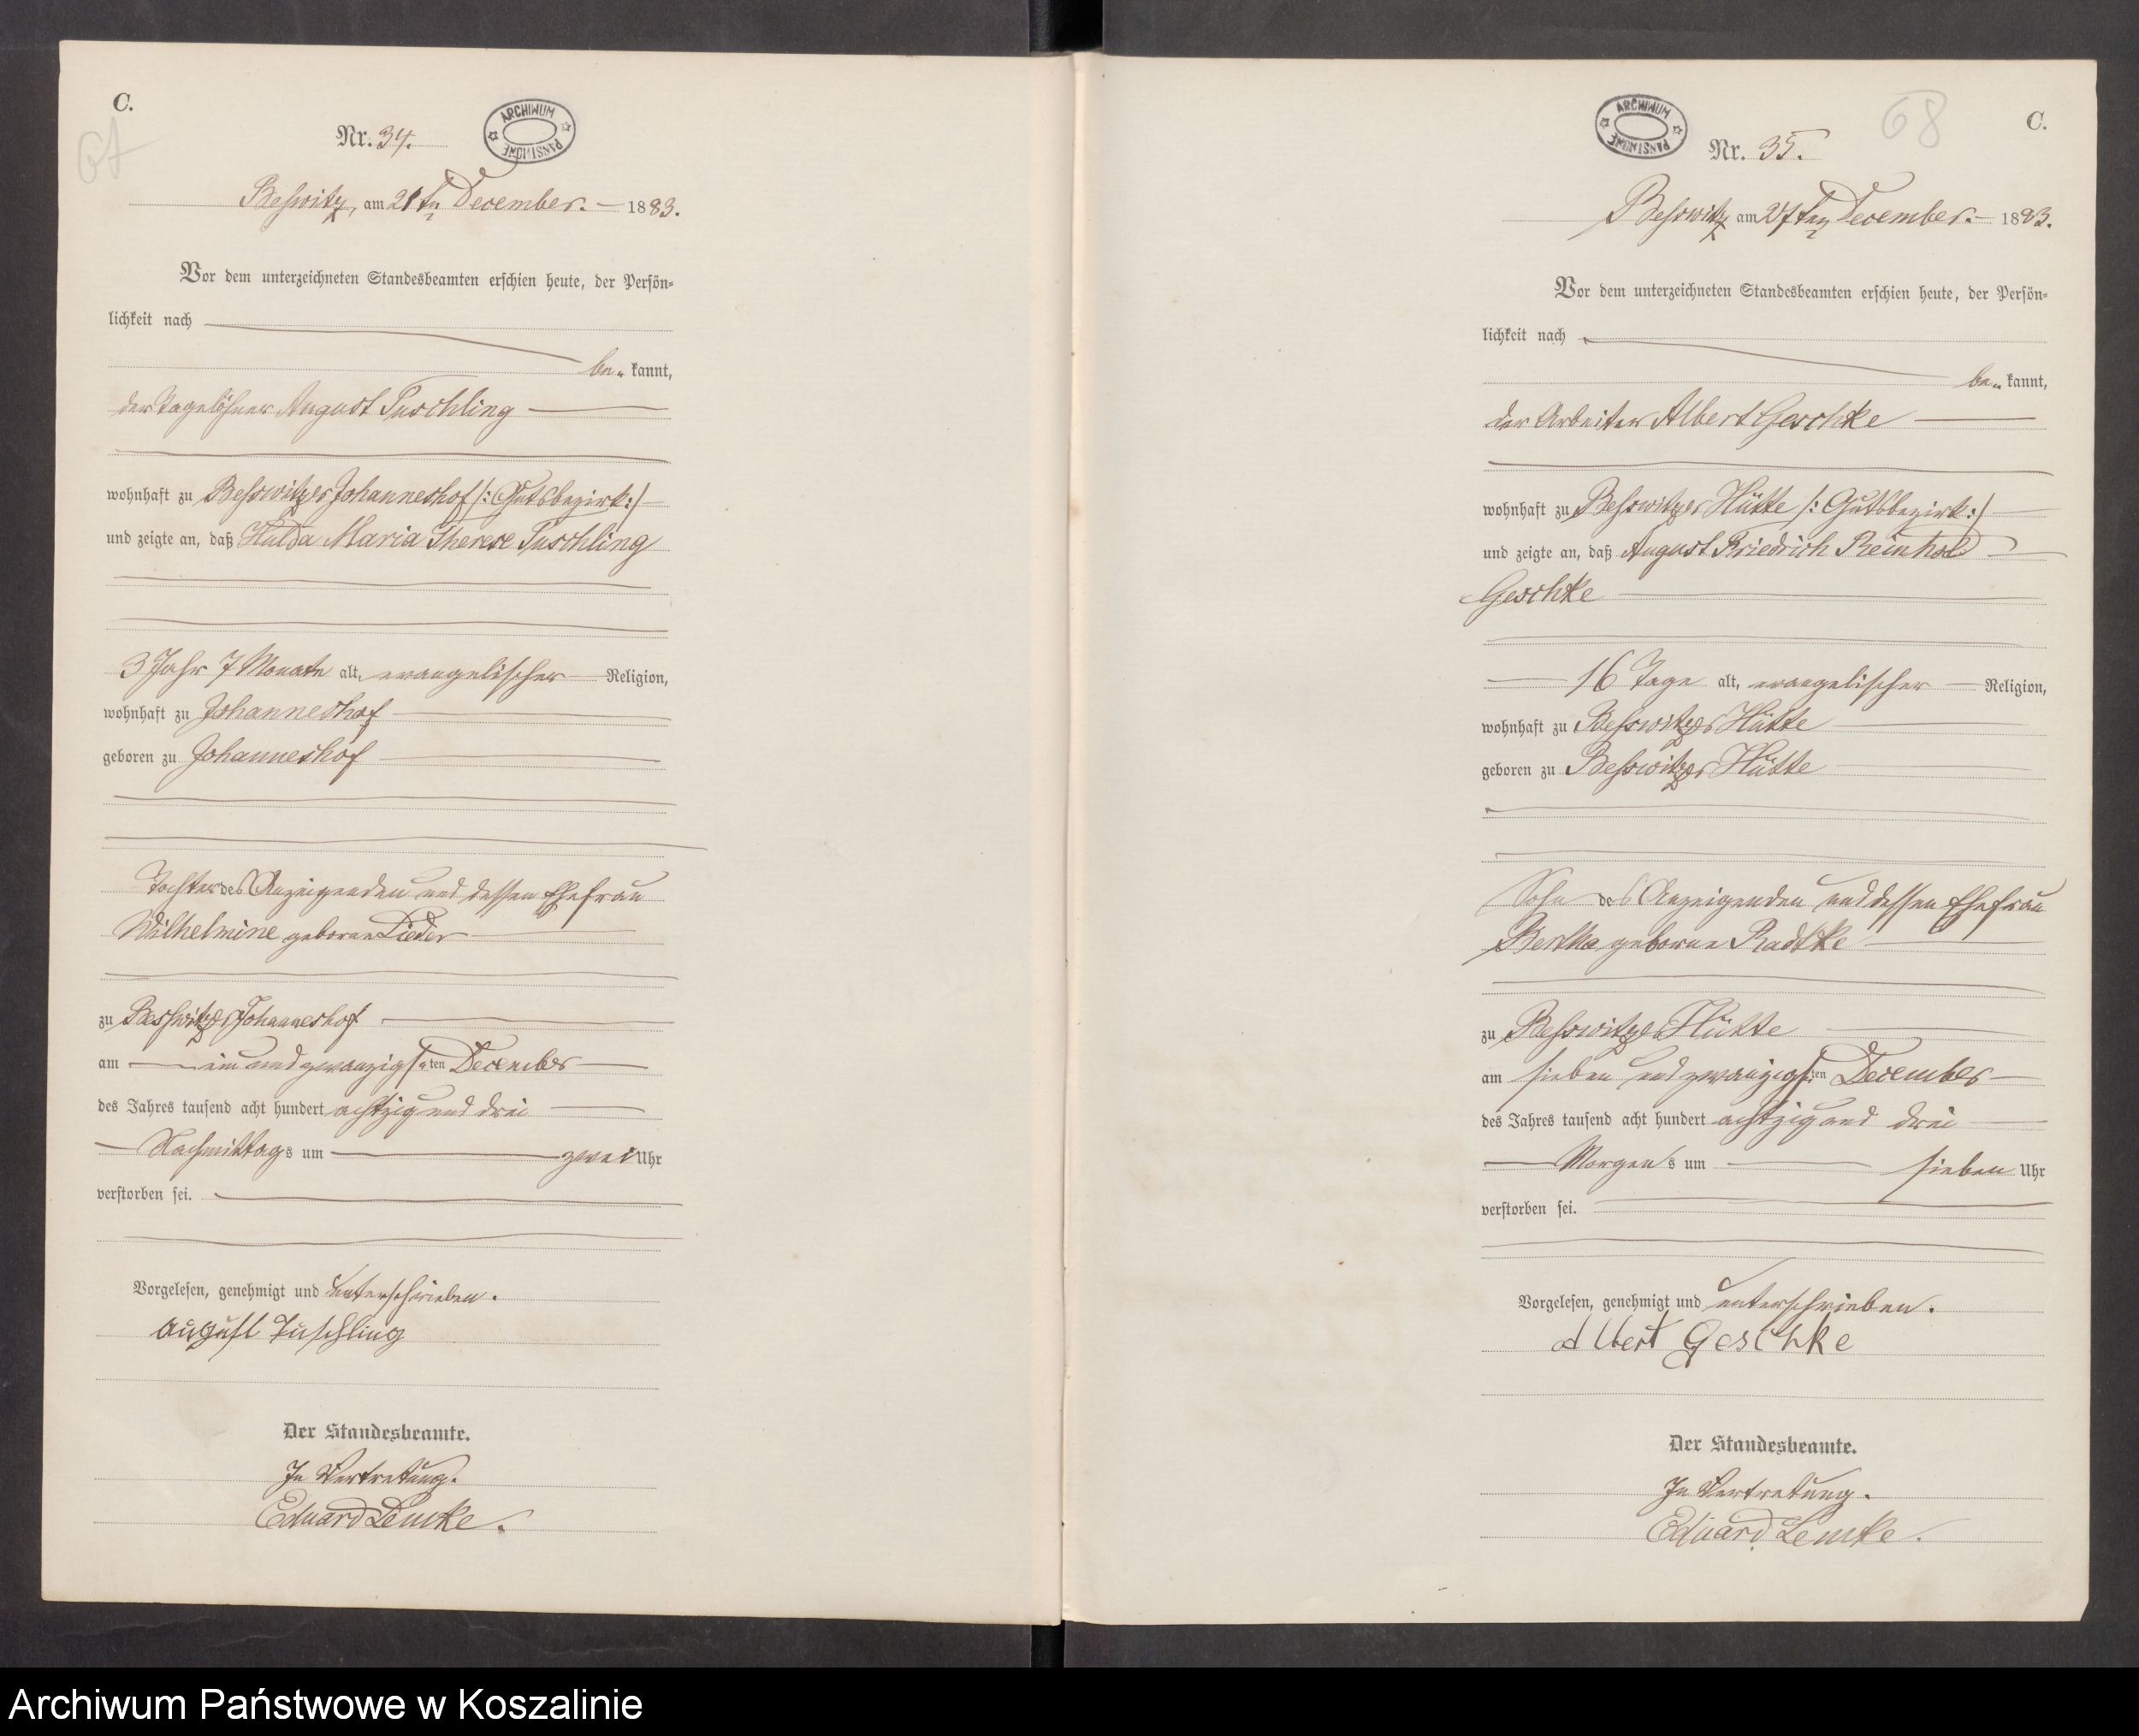 C.
67
Nr. 34.
ARCHIWUM PAŃSTWOWE
Beßwitz, am 21ten December. 1883.
Vor dem unterzeichneten Standesbeamten erschien heute, der Persön-
lichkeit nach
be- kannt,
der Tagelöhner August Tuschling
wohnhaft zu Beßwitzer Johanneshof /: Gutsbezirk :/
und zeigte an, daß Hulda Maria Therese Tuschling
3 Jahr 7 Monate alt, evangelischer Religion,
wohnhaft zu Johanneshof
geboren zu Johanneshof
Tochter des Anzeigenden und dessen Ehefrau
Wilhelmine geborne Lieder
zu Beßwitzer Johanneshof
am ein und zwanzigsten December
des Jahres tausend acht hundert achtzig und drei
Nachmittags um zwei Uhr
verstorben sei.
Vorgelesen, genehmigt und unterschrieben.
August Tuschling
Der Standesbeamte.
In Vertretung.
Eduard Lemke.
ARCHIWUM PAŃSTWOWE
68
C.
Nr. 35.
Beßwitz am 27ten December. 1883.
Vor dem unterzeichneten Standesbeamten erschien heute, der Persön-
lichkeit nach
be- kannt,
der Arbeiter Albert Geschke
wohnhaft zu Beßwitzer Hütte /: Gutsbezirk :/
und zeigte an, daß August Friedrich Reinhold
Geschke
16 Tage alt, evangelischer Religion,
wohnhaft zu Beßwitzer Hütte
geboren zu Beßwitzer Hütte
Sohn des Anzeigenden und dessen Ehefrau
Bertha geborne Radtke
zu Beßwitzer Hütte
am sieben und zwanzigsten December
des Jahres tausend acht hundert achtzig und drei
Morgens um sieben Uhr
verstorben sei.
Vorgelesen, genehmigt und unterschrieben.
Albert Geschke
Der Standesbeamte.
In Vertretung.
Eduard Lemke.
Archiwum Państwowe w Koszalinie